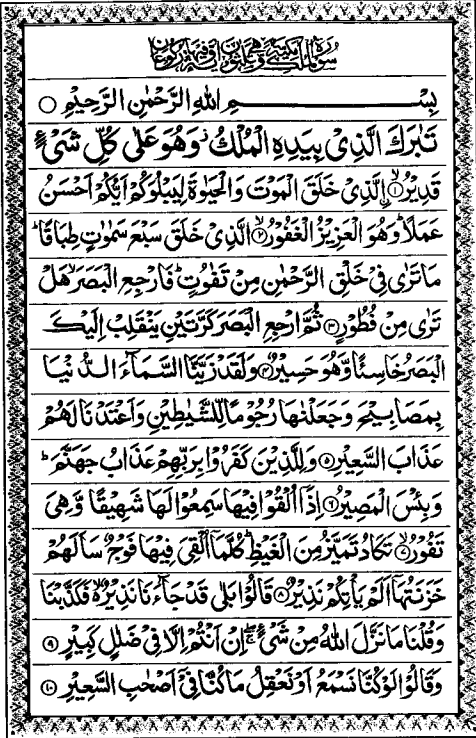 سُوْرَةُ الْمُلْكِ مَكِّيَّةٌ
بِسْمِ اللهِ الرَّحْمٰنِ الرَّحِيْمِ ○
تَبٰرَكَ الَّذِیْ بِيَدِهِ الْمُلْكُ ز وَهُوَ عَلٰی كُلِّ شَیْءٍ
قَدِيْرُ ۙ﴿۱﴾ اِلَّذِیْ خَلَقَ الْمَوْتَ وَالْحَيٰوةَ لِيَبْلُوَكُمْ اَيُّكُمْ اَحْسَنُ
عَمَلًا ؕ وَهُوَ الْعَزِيْزُ الْغَفُوْرُ ۙ﴿۲﴾ الَّذِیْ خَلَقَ سَبْعَ سَمٰوٰتٍ طِبَاقًا ؕ
مَا تَرٰی فِیْ خَلْقِ الرَّحْمٰنِ مِنْ تَفٰوُتٍ ؕ فَارْجِعِ الْبَصَرَ ۙ هَلْ
تَرٰی مِنْ فُطُوْرٍ ﴿۳﴾ ثُمَّ ارْجِعِ الْبَصَرَ كَرَّتَيْنِ يَنْقَلِبْ اِلَيْكَ
الْبَصَرُ خَاسِئًا وَّهُوَ حَسِيْرٌ ﴿۴﴾ وَلَقَدْ زَيَّنَّا السَّمَآءَ الدُّنْيَا
بِمَصَابِيْحَ وَجَعَلْنٰهَا رُجُوْمًا لِّلشَّيٰطِيْنِ وَاَعْتَدْنَا لَهُمْ
عَذَابَ السَّعِيْرِ ﴿۵﴾ وَلِلَّذِيْنَ كَفَرُوْا بِرَبِّهِمْ عَذَابُ جَهَنَّمَ ؕ
وَبِئْسَ الْمَصِيْرُ ﴿۶﴾ اِذَآ اُلْقُوْا فِيْهَا سَمِعُوْا لَهَا شَهِيْقًا وَّهِیَ
تَفُوْرُ ۙ﴿۷﴾ تَكَادُ تَمَيَّزُ مِنَ الْغَيْظِ ؕ كُلَّمَآ اُلْقِیَ فِيْهَا فَوْجٌ سَاَلَهُمْ
خَزَنَتُهَآ اَلَمْ يَاْتِكُمْ نَذِيْرٌ ﴿۸﴾ قَالُوْا بَلٰی قَدْ جَآءَنَا نَذِيْرٌ ۙ فَكَذَّبْنَا
وَقُلْنَا مَا نَزَّلَ اللهُ مِنْ شَیْءٍ ۖۚ اِنْ اَنْتُمْ اِلَّا فِیْ ضَلٰلٍ كَبِيْرٍ ﴿۹﴾
وَقَالُوْا لَوْ كُنَّا نَسْمَعُ اَوْ نَعْقِلُ مَا كُنَّا فِیْٓ اَصْحٰبِ السَّعِيْرِ ﴿۱۰﴾